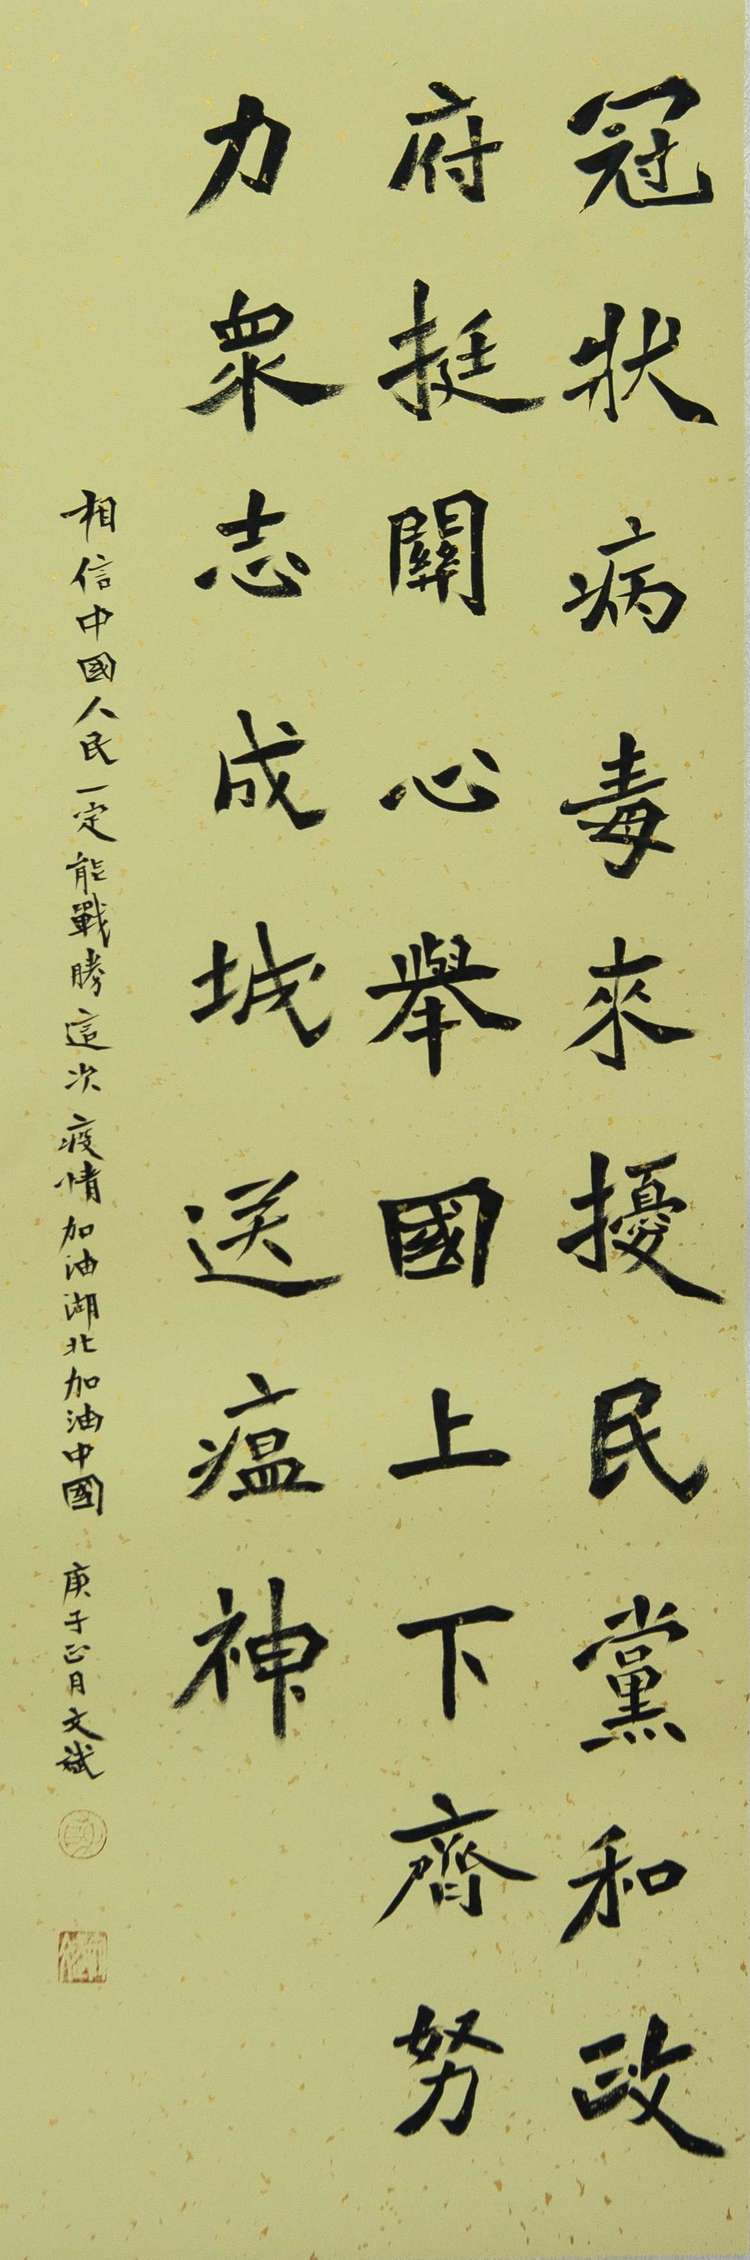 冠狀病毒來擾民黨和政
府挺關心舉國上下齊努
力眾志成城送瘟神
相信中國人民一定能戰勝這次疫情加油湖北加油中國 庚子正月文斌